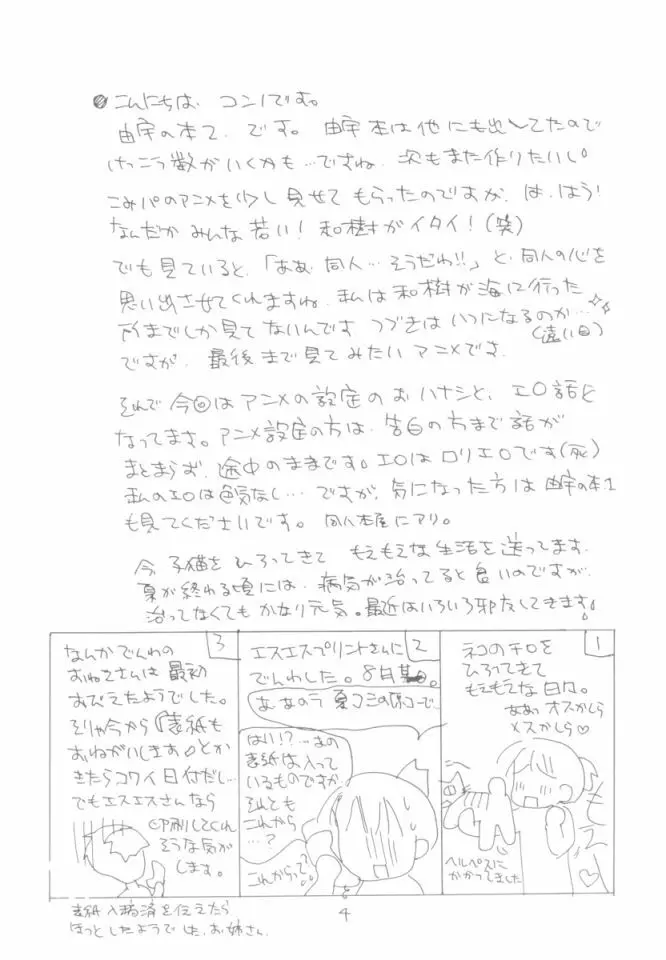 こんにちは、コンノです。
由宇の本2、です。由宇本は他にも出してたので
けっこう数がいくかも…ですね、次もまた作りたいし。
こみパのアニメを少し見せてもらったのですが、は、はう!
なんだかみんな若い!和樹がイタイ!(笑)
でも見ていると、「ああ、同人…そうだわ!!」と、同人の心を
思い出させてくれますね、私は和樹が海に行った
所までしか見てないんです つづきはいつになるのか…
(遠い目)
ですが、最後まで見てみたいアニメです。
それで今回はアニメの設定のおハナシと、エロ話と
なってます。アニメ設定の方は、告白の方まで話が
まとまらず、途中のままです。エロはロリエロです(死)
私のエロは色気なし…ですが、気になった方は由宇の本1
も見てくださいです。同人本屋にアリ。
今、子猫をひろってきて もえもえな生活を送ってます。
夏が終わる頃には、病気が治ってると良いのですが、
治ってなくてもかなり元気。最近はいろいろ邪魔してきます!
1
ネコのチロを
ひろってきて
もえもえな日々。
ああっオスかしら
メスかしら♡
もえ
ヘルペスに
かかってました
2
エスエスプリントさんに
でんわした。8月某日。
あ、あのう 夏コミの原コーで、
はい!?…あの
表紙は入って
いるものですが
それとも
これから
…?
これからって?
3
なんかでんわの
おねえさんは最初
おびえたようでした。
そりゃ今から『表紙も
おねがいします』とか
きたらコワイ日付だし…
でもエスエスさんなら
印刷してくれ
そうな気が
します。
表紙入稿済を伝えたら
ほっとしたようでした、お姉さん。
4